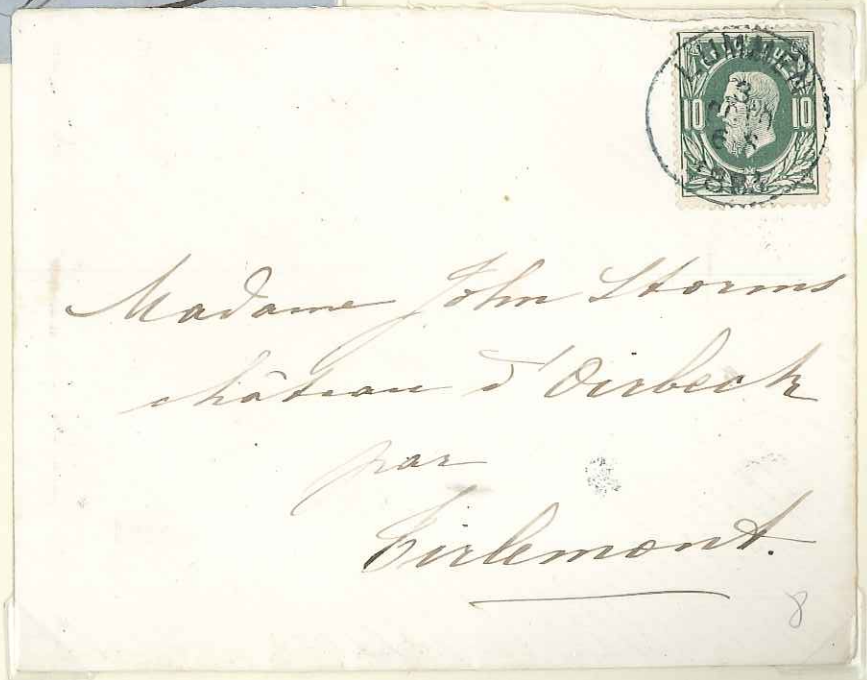 LUMMEN
10 10
Madame John Storms
château d'Oirbeck
par
Tirlemont.
8